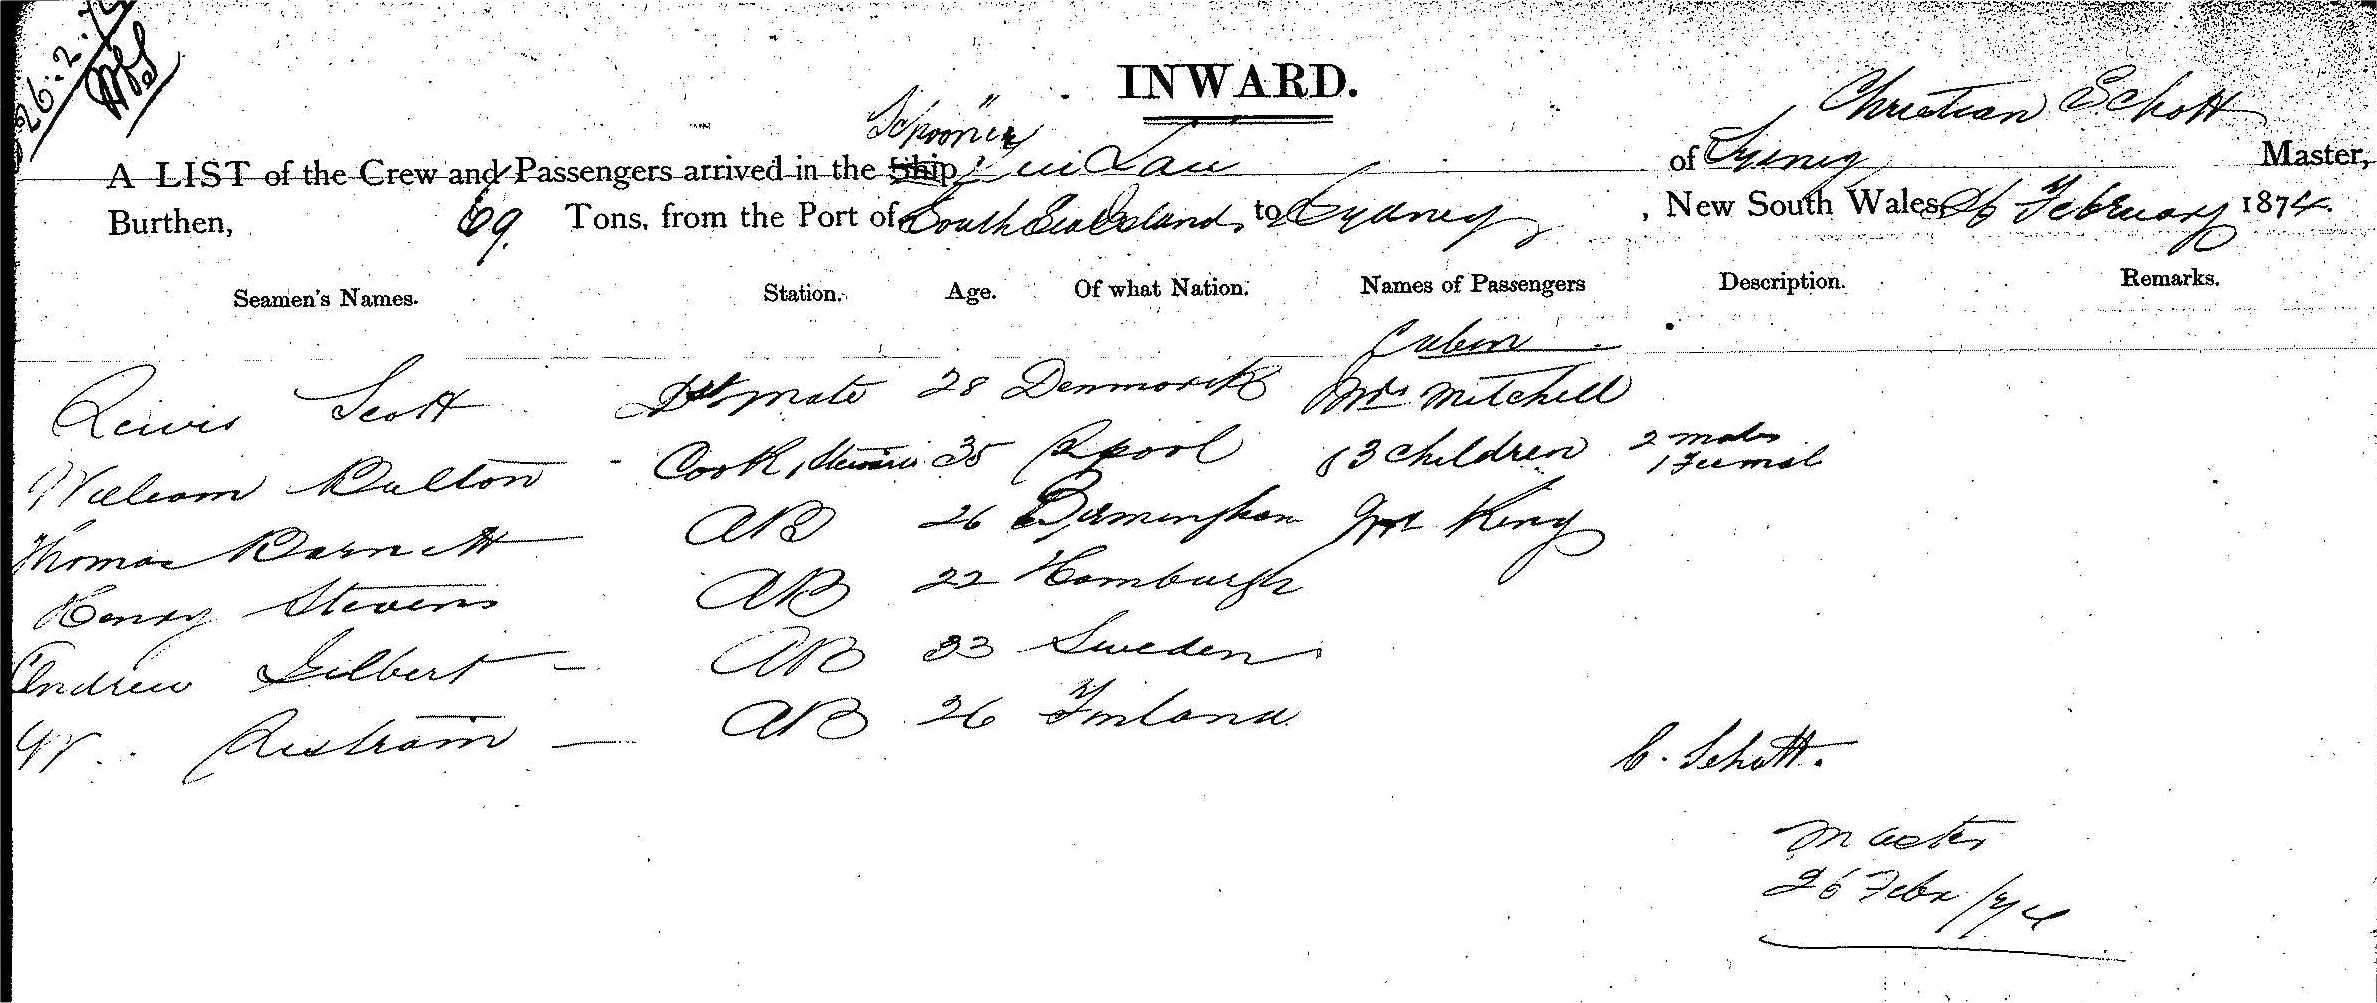 26.2.74
INWARD.
Schooner
Christian Schott
A LIST of the Crew and Passengers arrived in the Ship of Sydney Master,
Burthen, 69 Tons, from the Port of South Sea Islands to Sydney, New South Wales, 26 February 1874.
Seamen's Names. Station. Age. Of what Nation. Names of Passengers Description. Remarks.
Cabin
Lewis Scott 1st Mate 28 Denmark Mrs Mitchell
William Bulton Cook, Steward 35 Lpool 3 children 2 males
1 Femal
Thomas Barnett AB 26 Birmingham Mr King
Henry Stevens AB 22 Hamburgh
Andrew Gilbert AB 23 Sweden
W. AB 26 Finland
C. Schott.
Master
26 Febr /74